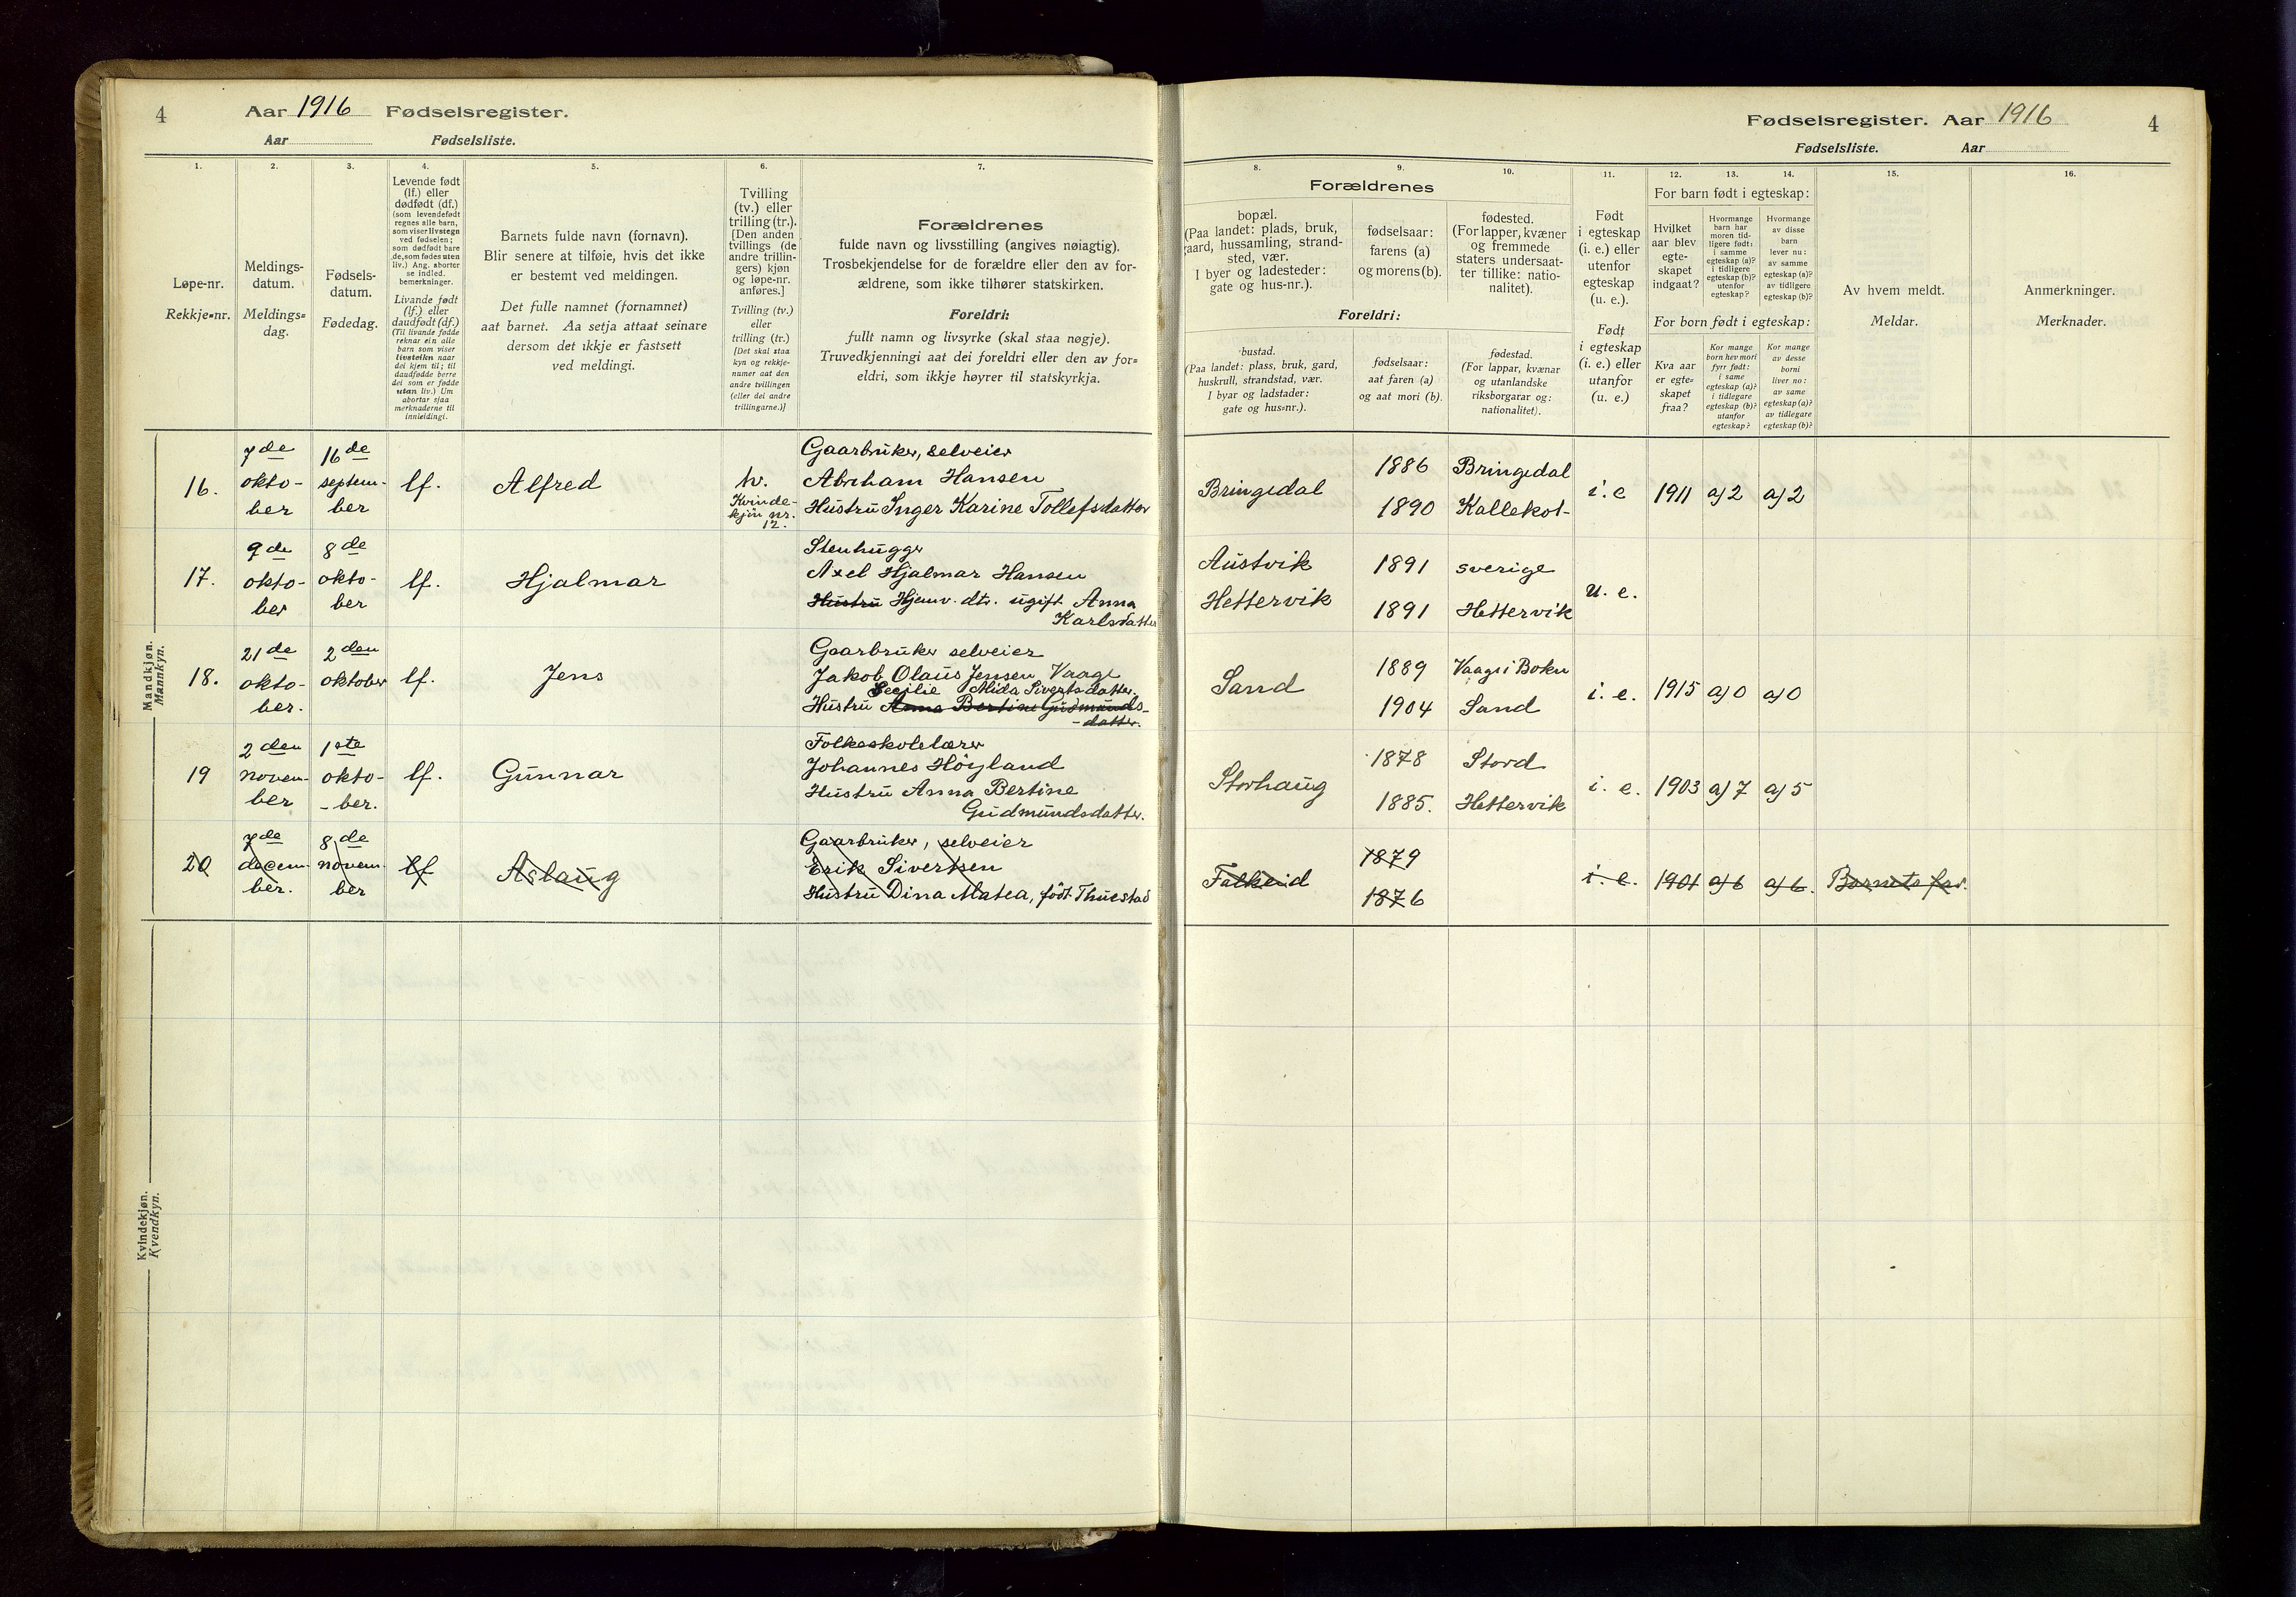 4
Aar 1916 Fødselsregister.
Aar Fødselsliste.
1.
2.
3.
4.
5.
6.
7.
Løpe-nr.
Rekkje-nr.
Meldings-
datum.
Meldings-
dag.
Fødsels-
datum.
Fødedag.
Levende født
(lf.) eller
dødfødt (df.)
(som levendefødt
regnes alle barn,
som viser livstegn
ved fødselen;
som dødfødt bare
de, som fødes uten
liv.) Ang. aborter
se indled.
bemerkninger.
Livande født
(lf.) eller
daudfødt (df.)
(Til livande fødde
reknar ein alle
barn som viser
livsteikn naar
dei kjem til; til
daudfødde berre
dei som er fødde
utan liv.) Um
abortar sjaa
merknaderne til
innleidingi.
Barnets fulde navn (fornavn).
Blir senere at tilføie, hvis det ikke
er bestemt ved meldingen.
Det fulle namnet (fornamnet)
aat barnet. Aa setja attaat seinare
dersom det ikkje er fastsett
ved meldingi.
Tvilling
(tv.) eller
trilling (tr.).
[Den anden
tvillings (de
andre trillin-
gers) kjøn
og løpe-nr.
anføres.]
Tvilling (tv.)
eller
trilling (tr.)
[Det skal staa
kyn og rekkje-
numer aat den
andre tvillingen
(eller dei andre
trillingarne.)]
Forældrenes
fulde navn og livsstilling (angives nøiagtig).
Trosbekjendelse for de forældre eller den av for-
ældrene, som ikke tilhører statskirken.
Foreldri:
fullt namn og livsyrke (skal staa nøgje).
Truvedkjenningi aat dei foreldri eller den av for-
eldri, som ikkje høyrer til statskyrkja.
Mandkjøn.
Mannkyn.
16.
7de
okto-
ber
16de
septem-
ber
lf.
Alfred
tv.
Kvinde-
kjøn nr.
12.
Gaarbruker, selveier
Abraham Hansen
Hustru Inger Karine Tollefsdatter
17.
9de
okto-
ber
8de
okto-
ber
lf.
Hjalmar
Stenhugger
Axel Hjalmar Hansen
Hustru Hjemv. dtr. ugift Anna
Karlsdatter
18.
21de
okto-
ber.
2den
oktober
lf.
Jens
Gaarbruker selveier
Jakob Olaus Jensen Vaage
Secilie Alida Sivertsdatter.
Hustru Anna Bertine Gudmunds-
-datter.
19
2den
novem-
ber
1ste
okto-
-ber.
lf.
Gunnar
Folkeskolelærer
Johannes Höyland
Hustru Anna Bertine
Gudmundsdatter.
20
7de
decem-
ber.
8de
novem-
ber
lf
Aslaug
Gaarbruker, selveier
Erik Sivertsen
Hustru Dina Matea, födt Thuestad
Kvindekjøn.
Kvendkyn.
Fødselsregister. Aar 1916
4
Fødselsliste. Aar
8.
9.
10.
11.
12.
13.
14.
15.
16.
Forældrenes
bopæl.
(Paa landet: plads, bruk,
gaard, hussamling, strand-
sted, vær.
I byer og ladesteder:
gate og hus-nr.).
fødselsaar:
farens (a)
og morens (b).
fødested.
(For lapper, kvæner
og fremmede
staters undersaat-
ter tillike: natio-
nalitet).
Foreldri:
bustad.
(Paa landet: plass, bruk, gard,
huskrull, strandstad, vær.
I byar og ladstader:
gate og hus-nr.).
fødselsaar:
aat faren (a)
og aat mori (b).
fødestad.
(For lappar, kvænar
og utanlandske
riksborgarar og:
nationalitet).
Født
i egteskap
(i. e.) eller
utenfor
egteskap
(u. e.).
Født
i egteskap
(i. e.) eller
utanfor
(u. e.)
For barn født i egteskap:
Hvilket
aar blev
egte-
skapet
indgaat?
Hvormange
barn har
moren tid-
ligere født:
i samme
egteskap (a)?
i tidligere
egteskap (b)?
utenfor
egteskap?
Hvormange
av disse
barn
lever nu:
av samme
egteskap (a)?
av tidligere
egteskap (b)?
For born født i egteskap:
Kva aar
er egte-
skapet
fraa?
Kor mange
born hev mori
fyrr født:
i same
egteskap (a)?
i tidlegare
egteskap (b)?
utanfor
egteskap?
Kor mange
av desse
borni
liver no:
av same
egteskap (a)?
av tidlegare
egteskap (b)?
Av hvem meldt.
Meldar.
Anmerkninger.
Merknader.
Bringedal
1886
1890
Bringedal
Kallekot-
i. e
1911
a) 2
a) 2
Austvik
Hettervik
1891
1891
sverige
Hettervik
u. e.
Sand
1889
1904
Vaage i Bokn
Sand
i. e.
1915
a) 0
a) 0
Storhaug
1878
1885.
Stord
Hettervik
i. e.
1903
a) 7
a) 5
Falkeid
1879
1876
i. e.
1901
a) 6
a) 6.
Barnets far.